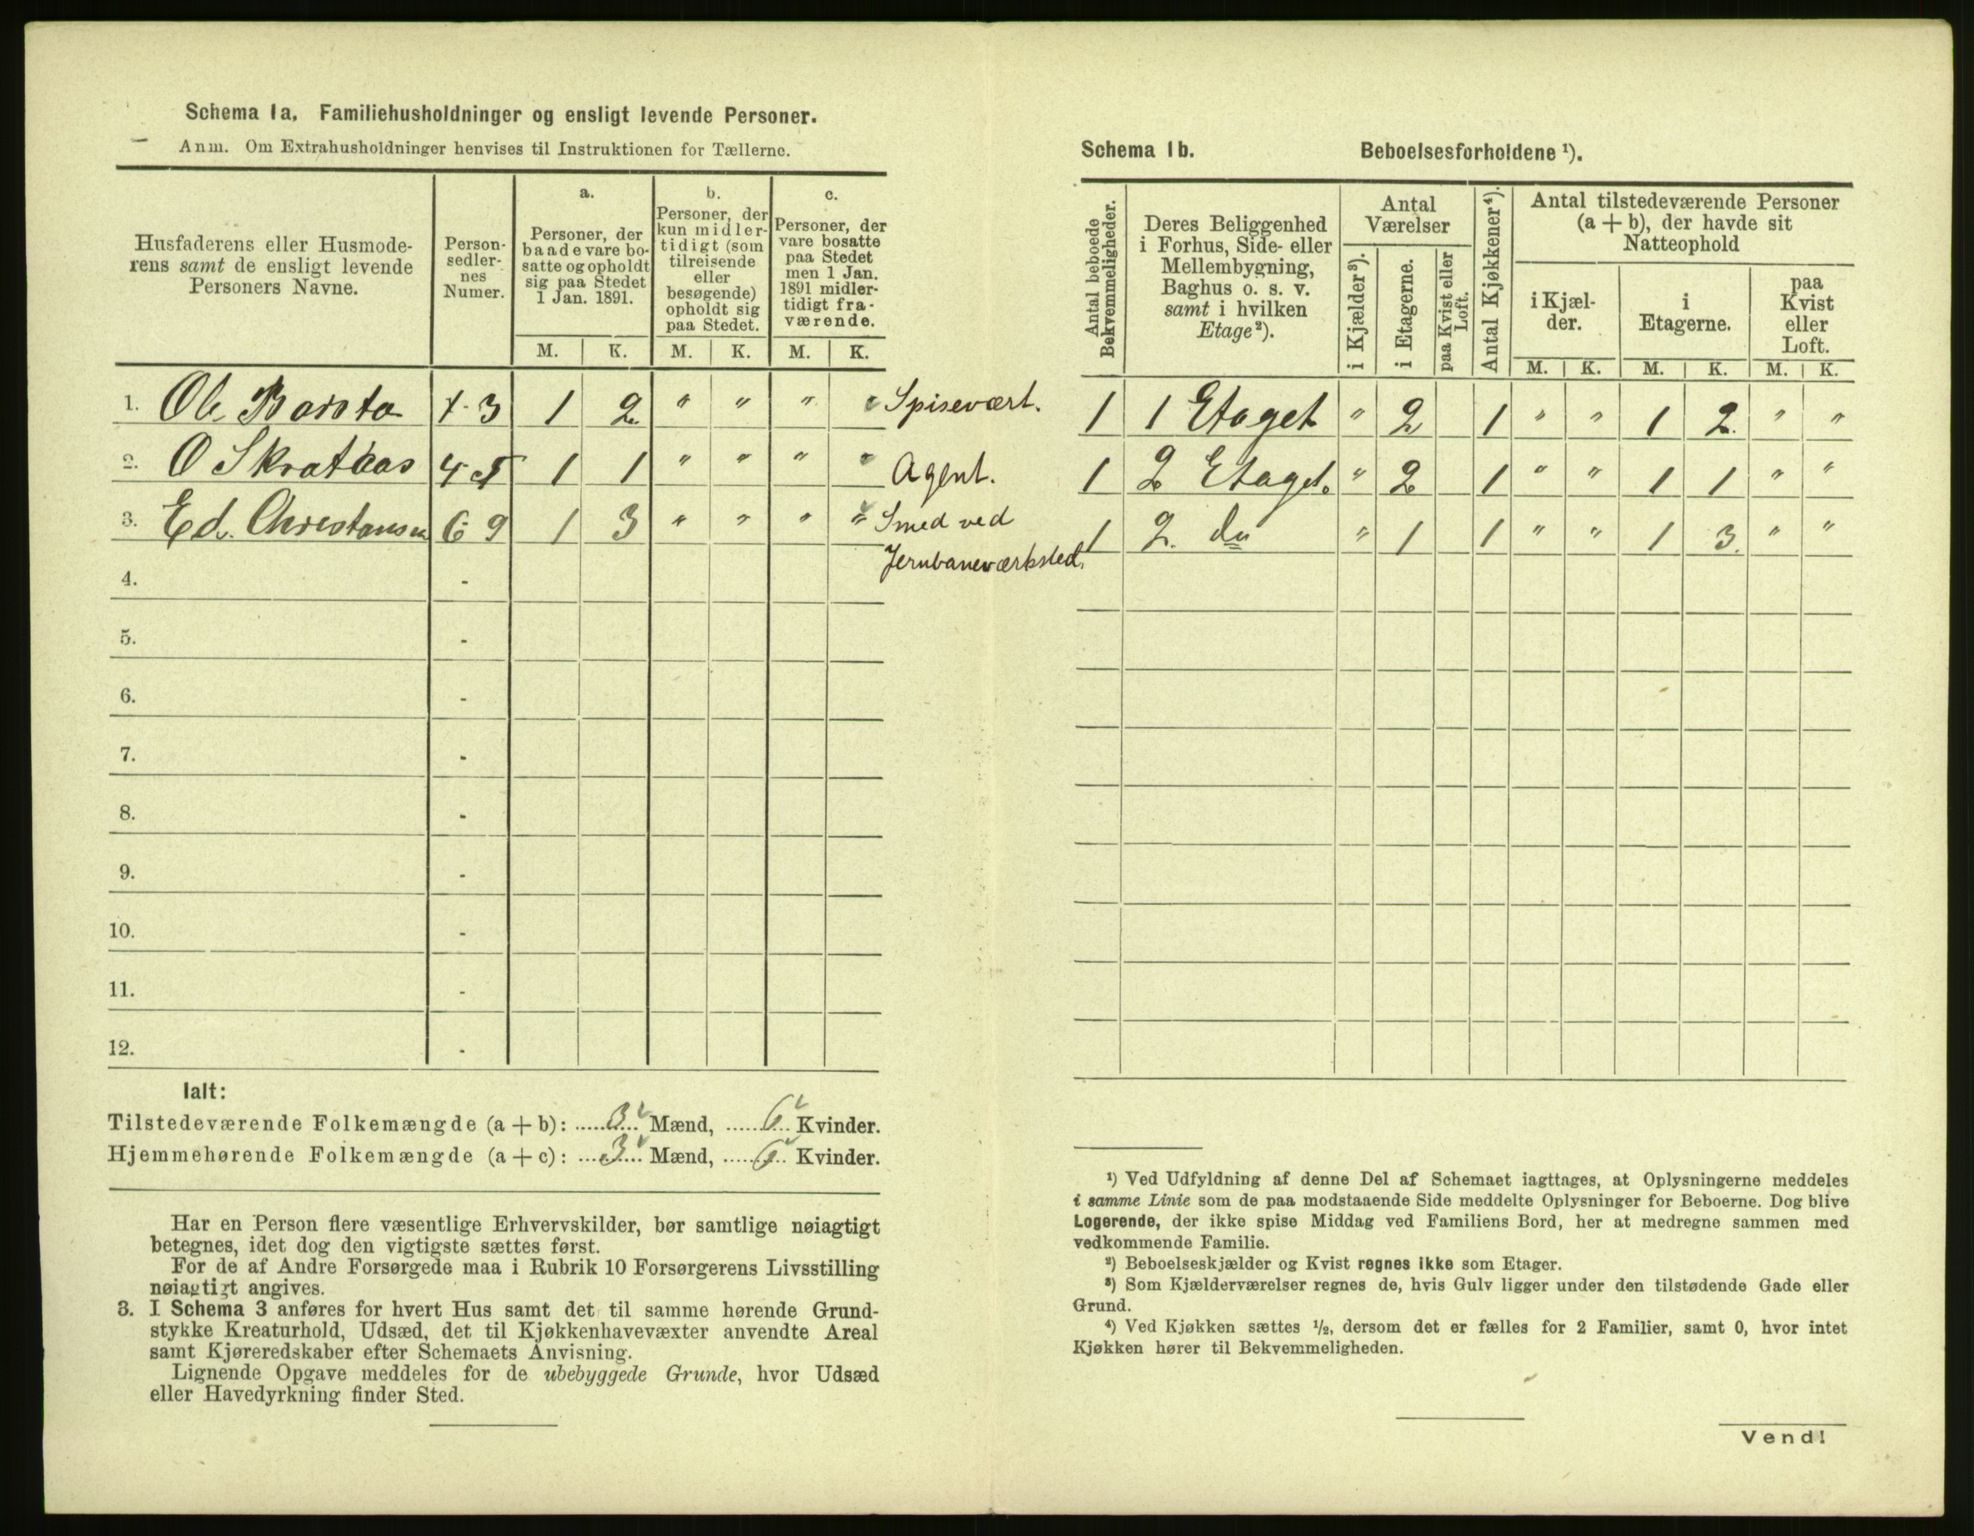 Schema 1a. Familiehusholdninger og ensligt levende Personer.
Anm. Om Extrahusholdninger henvises til Instruktionen for Tællerne.
Husfaderens eller Husmode-
rens samt de ensligt levende
Personers Navne.
Person-
sedler-
nes
Numer.
a.
Personer, der
baade vare bo-
satte og opholdt
sig paa Stedet
1 Jan. 1891.
b.
Personer, der
kun midler-
tidigt (som
tilreisende
eller
besøgende)
opholdt sig
paa Stedet.
c.
Personer, der
vare bosatte
paa Stedet
men 1 Jan.
1891 midler-
tidigt fra-
værende.
M. K. M. K. M. K.
1. Ole Barsta 1-3 1 2 " " " " Spisevært.
2. O Skrataas 4-5 1 1 " " " " Agent.
3. Ed. Christansen 6-9 1 3 " " " " Smed ved
Jernbaneværksted.
4. -
5. -
6. -
7. -
8. -
9. -
10. -
11. -
12. -
Ialt:
Tilstedeværende Folkemængde (a + b): 3 Mænd, 6 Kvinder.
Hjemmehørende Folkemængde (a + c): 3 Mænd, 6 Kvinder.
Har en Person flere væsentlige Erhvervskilder, bør samtlige nøiagtigt
betegnes, idet dog den vigtigste sættes først.
For de af Andre Forsørgede maa i Rubrik 10 Forsørgerens Livsstilling
nøiagtigt angives.
3. I Schema 3 anføres for hvert Hus samt det til samme hørende Grund-
stykke Kreaturhold, Udsæd, det til Kjøkkenhavevæxter anvendte Areal
samt Kjøreredskaber efter Schemaets Anvisning.
Lignende Opgave meddeles for de ubebyggede Grunde, hvor Udsæd
eller Havedyrkning finder Sted.
Schema 1b. Beboelsesforholdene ¹).
Antal beboede
Bekvemmeligheder.
Deres Beliggenhed
i Forhus, Side- eller
Mellembygning,
Baghus o. s. v.
samt i hvilken
Etage²).
Antal
Værelser
i Kjælder³).
i Etagerne.
paa Kvist eller
Loft.
Antal Kjøkkener⁴).
Antal tilstedeværende Personer
(a + b), der havde sit
Natteophold
i Kjæl-
der.
i
Etagerne.
paa
Kvist
eller
Loft.
M. K. M. K. M. K.
1 1 Etaget " 2 1 " " 1 2 " "
1 2 Etaget. " 2 1 " " 1 1 " "
1 2. do " 1 1 " " 1 3. " "
¹) Ved Udfyldning af denne Del af Schemaet iagttages, at Oplysningerne meddeles
i samme Linie som de paa modstaaende Side meddelte Oplysninger for Beboerne. Dog blive
Logerende, der ikke spise Middag ved Familiens Bord, her at medregne sammen med
vedkommende Familie.
²) Beboelseskjælder og Kvist regnes ikke som Etager.
³) Som Kjælderværelser regnes de, hvis Gulv ligger under den tilstødende Gade eller
Grund.
⁴) Ved Kjøkken sættes ½, dersom det er fælles for 2 Familier, samt 0, hvor intet
Kjøkken hører til Bekvemmeligheden.
Vend!